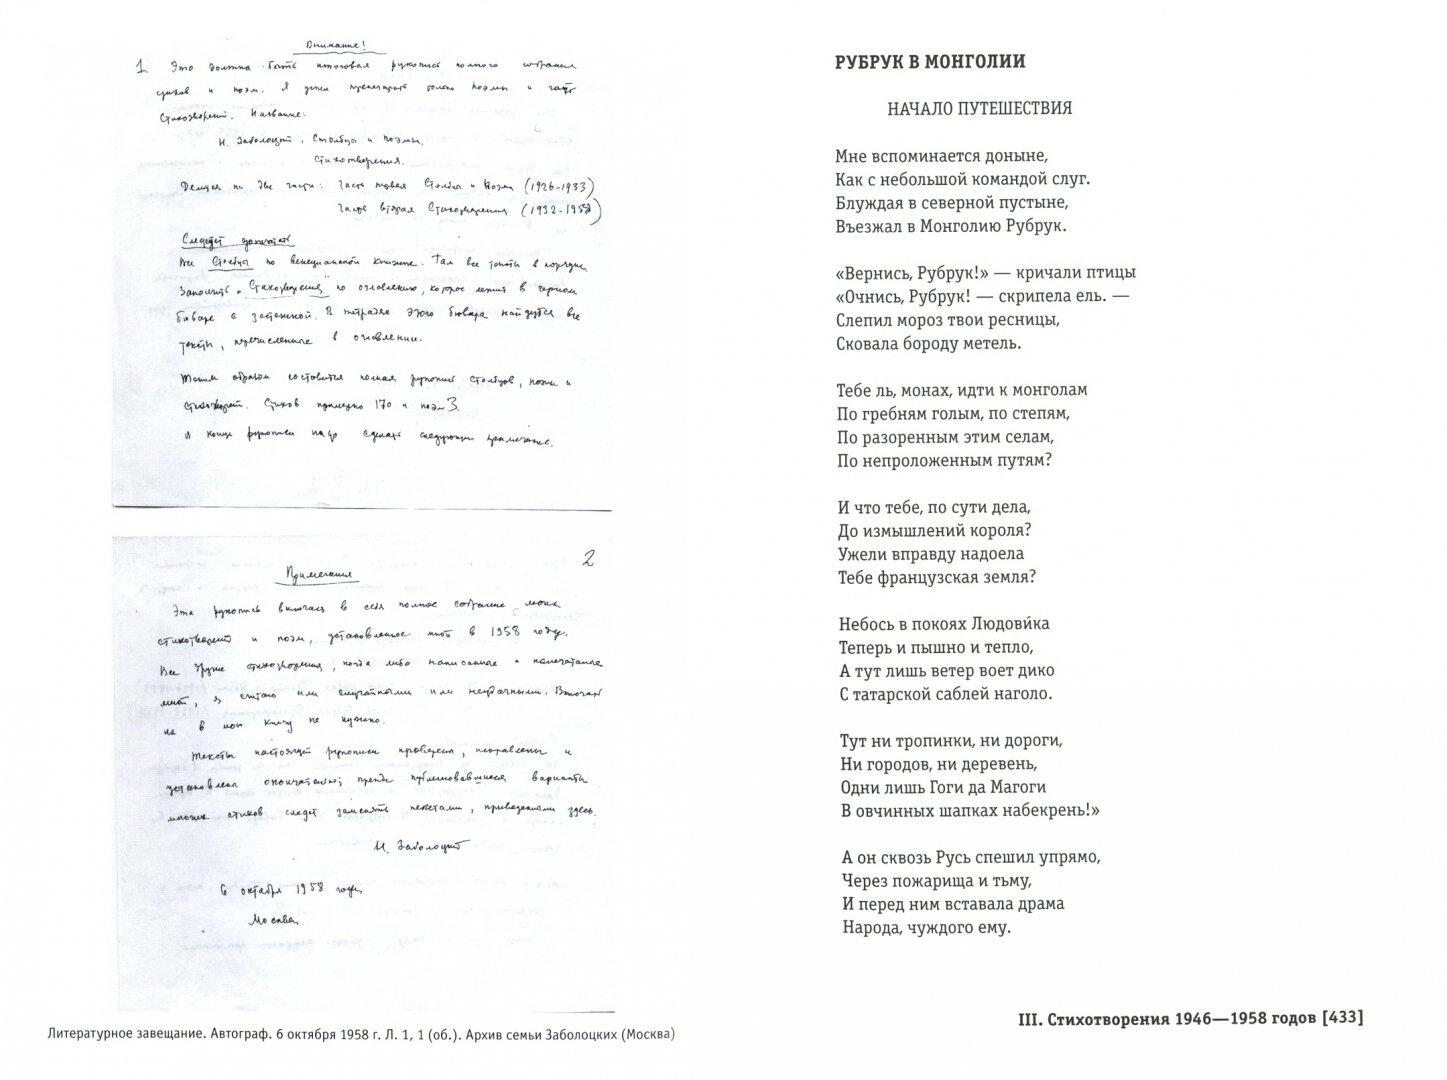 Внимание!
1 Это должна быть итоговая рукопись полного собрания
стихов и поэм. Я успел перепечатать только поэмы и часть
стихотворений. Название:
Н. Заболоцкий. Столбцы и поэмы.
Стихотворения.
Делится на две части: Часть первая Столбцы и Поэмы (1926-1933)
Часть вторая Стихотворения (1932-1958)
Следует допечатать
Все Столбцы по венецианской книжке. Там все тексты в порядке.
Заполнить "Стихотворения" по оглавлению, которое лежит в черном
бюваре с застежкой. В тетрадях этого бювара найдутся все
тексты, перечисленные в оглавлении.
Таким образом составится полная рукопись Столбцов, поэм и
стихотворений. Стихов примерно 170 и поэм 3.
В конце рукописи надо сделать следующее примечание.
2
Примечание
Эта рукопись включает в себя полное собрание моих
стихотворений и поэм, установленное мной в 1958 году.
Все другие стихотворения, когда либо написанные и напечатанные
мной, я считаю или случайными или неудачными. Включать
их в мою книгу не нужно.
Тексты настоящей рукописи проверены, исправлены и
установлены окончательно; прежде публиковавшиеся варианты
многих стихов следует заменять текстами, приведенными здесь.
Н. Заболоцкий
6 октября 1958 года
Москва.
Литературное завещание. Автограф. 6 октября 1958 г. Л. 1, 1 (об.). Архив семьи Заболоцких (Москва)
РУБРУК В МОНГОЛИИ
НАЧАЛО ПУТЕШЕСТВИЯ
Мне вспоминается доныне,
Как с небольшой командой слуг.
Блуждая в северной пустыне,
Въезжал в Монголию Рубрук.
«Вернись, Рубрук!» — кричали птицы
«Очнись, Рубрук! — скрипела ель. —
Слепил мороз твои ресницы,
Сковала бороду метель.
Тебе ль, монах, идти к монголам
По гребням голым, по степям,
По разоренным этим селам,
По непроложенным путям?
И что тебе, по сути дела,
До измышлений короля?
Ужели вправду надоела
Тебе французская земля?
Небось в покоях Людови́ка
Теперь и пышно и тепло,
А тут лишь ветер воет дико
С татарской саблей наголо.
Тут ни тропинки, ни дороги,
Ни городов, ни деревень,
Одни лишь Гоги да Магоги
В овчинных шапках набекрень!»
А он сквозь Русь спешил упрямо,
Через пожарища и тьму,
И перед ним вставала драма
Народа, чуждого ему.
III. Стихотворения 1946—1958 годов [433]